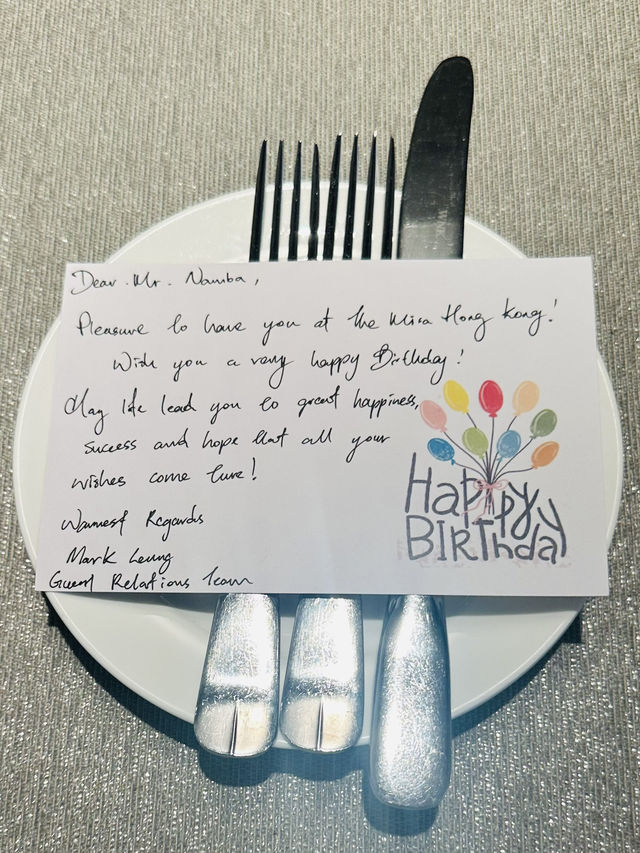 Dear Mr. Namba,
Pleasure to have you at the Mira Hong Kong!
Wish you a very happy Birthday!
May life lead you to great happiness,
success and hope that all your
wishes come ture!
Warmest Regards
Mark Leung
Guest Relations Team
Happy
BIRThday